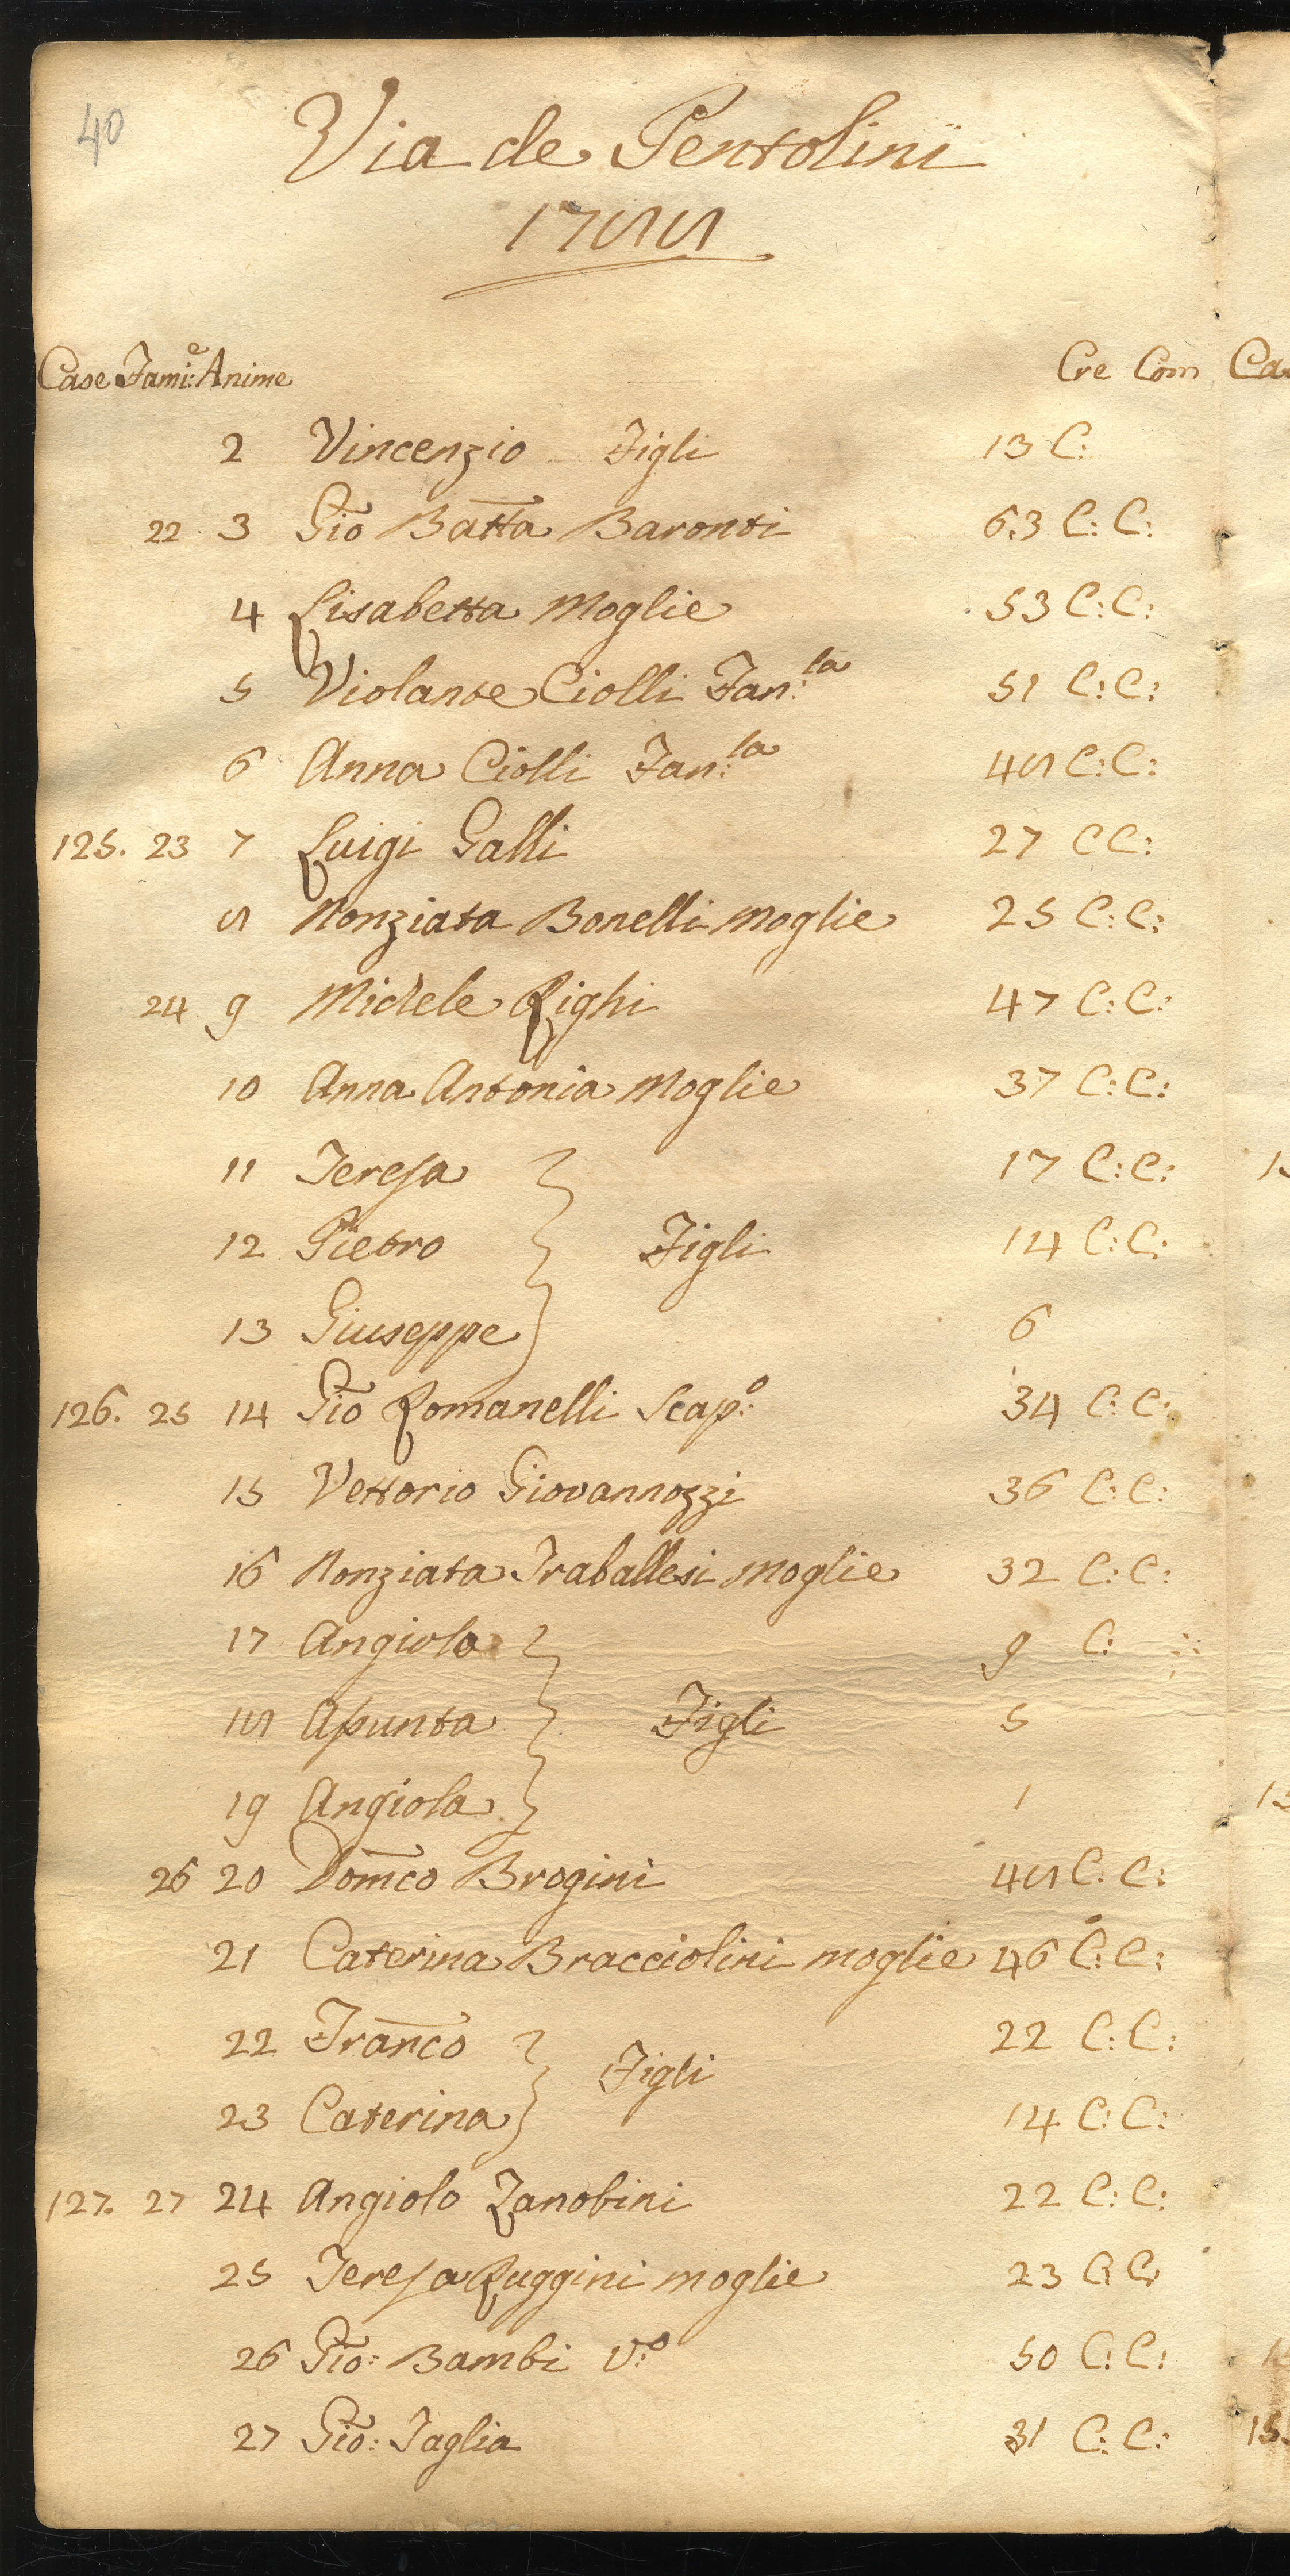 40
Via de Pentolini
1788
Case Fami:e Anime Cre Com
2 Vincenzio Figli 13 C:
22 3 Gio Batta Baronti 63 C: C:
4 Lisabetta Moglie 53 C: C:
5 Violante Ciolli Fan:la 51 C: C:
6 Anna Ciolli Fan:la 48 C: C:
125. 23 7 Luigi Galli 27 C C:
8 Nonziata Bonelli Moglie 25 C: C:
24 9 Michele Righi 47 C: C:
10 Anna Antonia Moglie 37 C: C:
11 Teresa 17 C: C:
12 Pietro Figli 14 C: C:
13 Giuseppe 6
126. 25 14 Gio Romanelli Scap:o 34 C: C:
15 Vettorio Giovannozzi 36 C: C:
16 Nonziata Traballesi Moglie 32 C: C:
17 Angiolo 9 C:
18 Asunta Figli 5
19 Angiola 1
26 20 Domco Brogini 48 C: C:
21 Caterina Bracciolini moglie 46 C: C:
22 Franco 22 C: C:
Figli
23 Caterina 14 C: C:
127. 27 24 Angiolo Zanobini 22 C: C:
25 Teresa Ruggini moglie 23 C: C:
26 Gio: Bambi V:o 50 C: C:
27 Gio: Taglia 31 C: C: